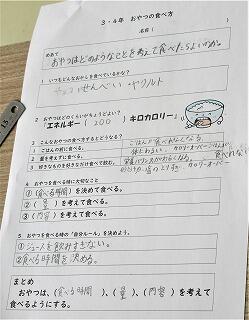 3・4年 おやつの食べ方
名前(　　)
めあて
おやつはどのようなことを考えて食べたらよいのか。
1 いつもどんなおかしを食べているかな?
チョコ せんべい ヤクルト
2 おやつはどのくらいがちょうどよい?
「エネルギー(200)キロカロリー」
3 こんなおやつの食べ方するとどうなる?
1 ごはんの前に食べる。
ごはんが食べれなくなる
2 量を考えずに食べる。
カロリーオーバー
3 好きなものを好きなだけ食べて飲む。
4 おやつを食べる時に大切なこと
①(食べる時間)を決めて食べる。
②(量)を考えて食べる。
③(内容)を考えて食べる。
5 おやつを食べる時の「自分ルール」を決めよう。
①ジュースを飲みすぎない。
②食べる時間を決める。
まとめ
おやつは、(食べる時間)、(量)、(内容)を考えて
食べるようにする。